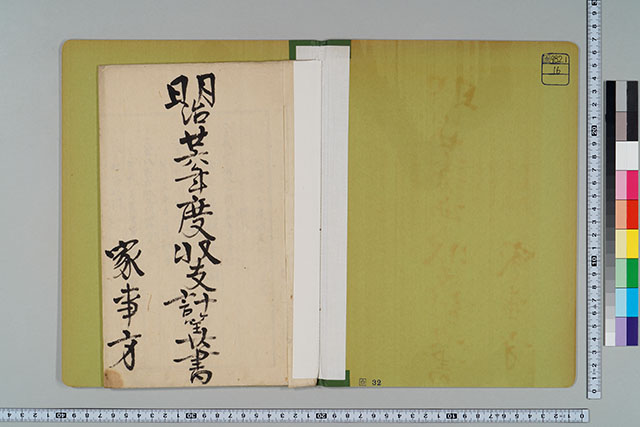 明治廿六年度収支計算書
家事方
16
32